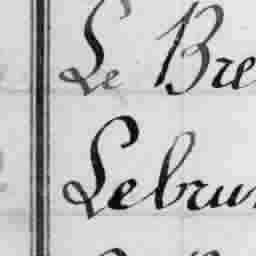 Le Bre
Lebru